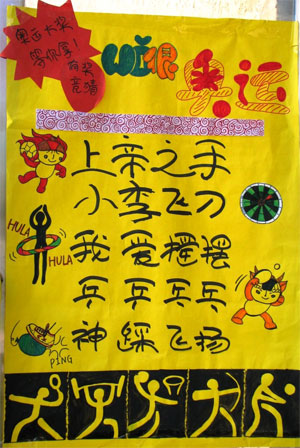 奥运大奖
等你拿!
有奖
竞猜
奥运
上帝之手
小李飞刀
HULA
HULA
我爱摆摆
乒乓乒乓
PING
神踩飞扬